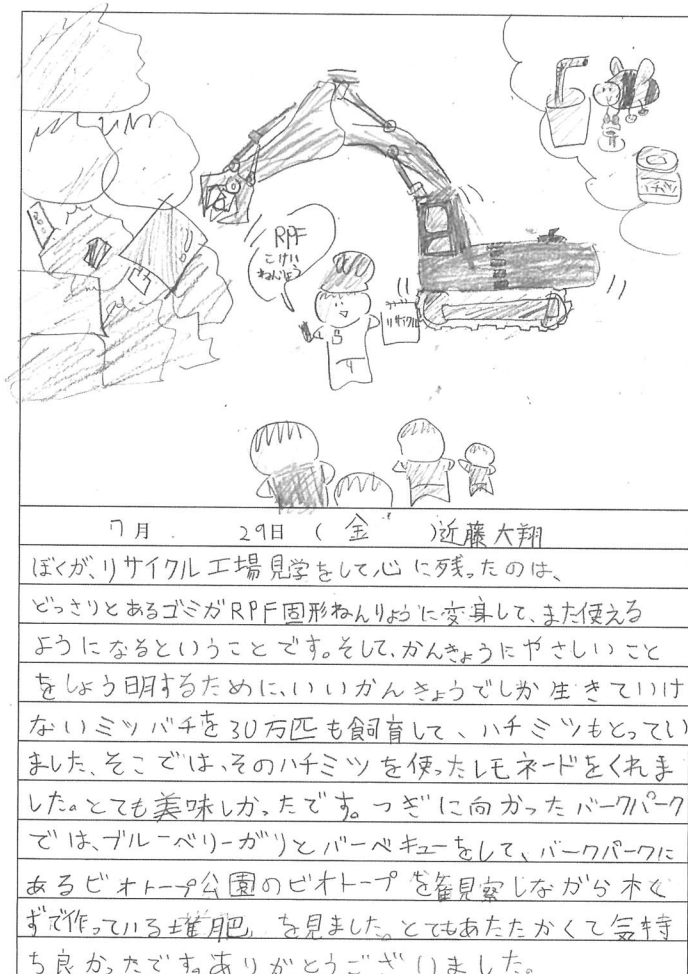 RPF
こけい
ねんりょう
リサイクル
ハチミツ
7月 29日 (金) 近藤大翔
ぼくが、リサイクル工場見学をして心に残ったのは、
どっさりとあるゴミがRPF固形ねんりょうに変身して、また使える
ようになるということです。そして、かんきょうにやさしいこと
をしょう明するために、いいかんきょうでしか生きていけ
ないミツバチを30万匹も飼育して、ハチミツもとってい
ました、そこでは、そのハチミツを使ったレモネードをくれま
した。とても美味しかったです。つぎに向かったバークパーク
では、ブルーベリーガリとバーベキューをして、バークパークに
あるビオトープ公園のビオトープを観察しながら木く
ずで作っている堆肥を見ました。とてもあたたかくて気持
ち良かったです。ありがとうございました。